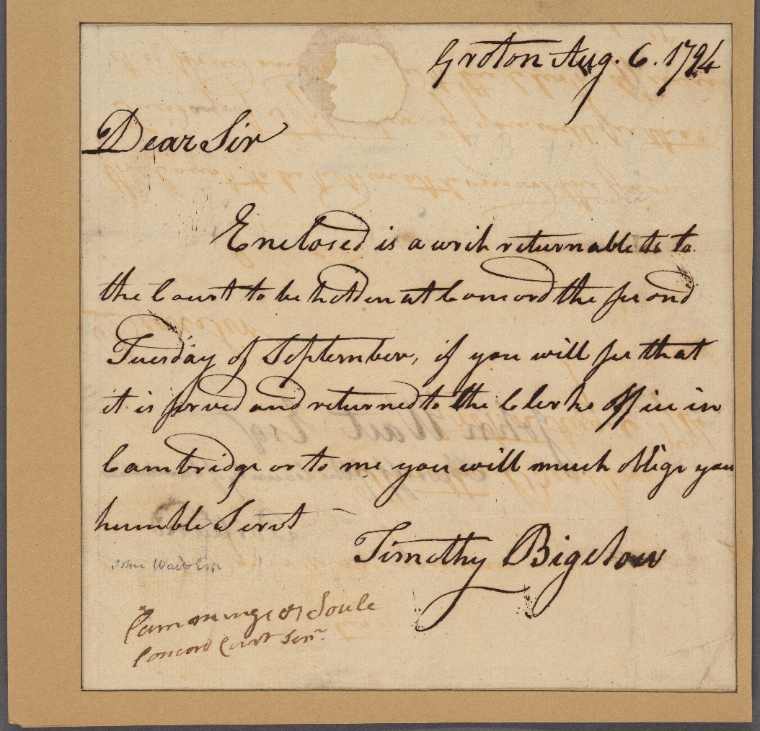 Groton Aug. 6. 1794
Dear Sir
Enclosed is a writ returnable to
the Court to be holden at Concord the second
Tuesday of September, if you will see that
it is served and returned to the Clerks Office in
Cambridge or to me you will much oblige you
humble Servt
Timothy Bigelow
John Wait Esqr
Cummings vs Soule
Concord Court Sepr.
John Wait Esqr